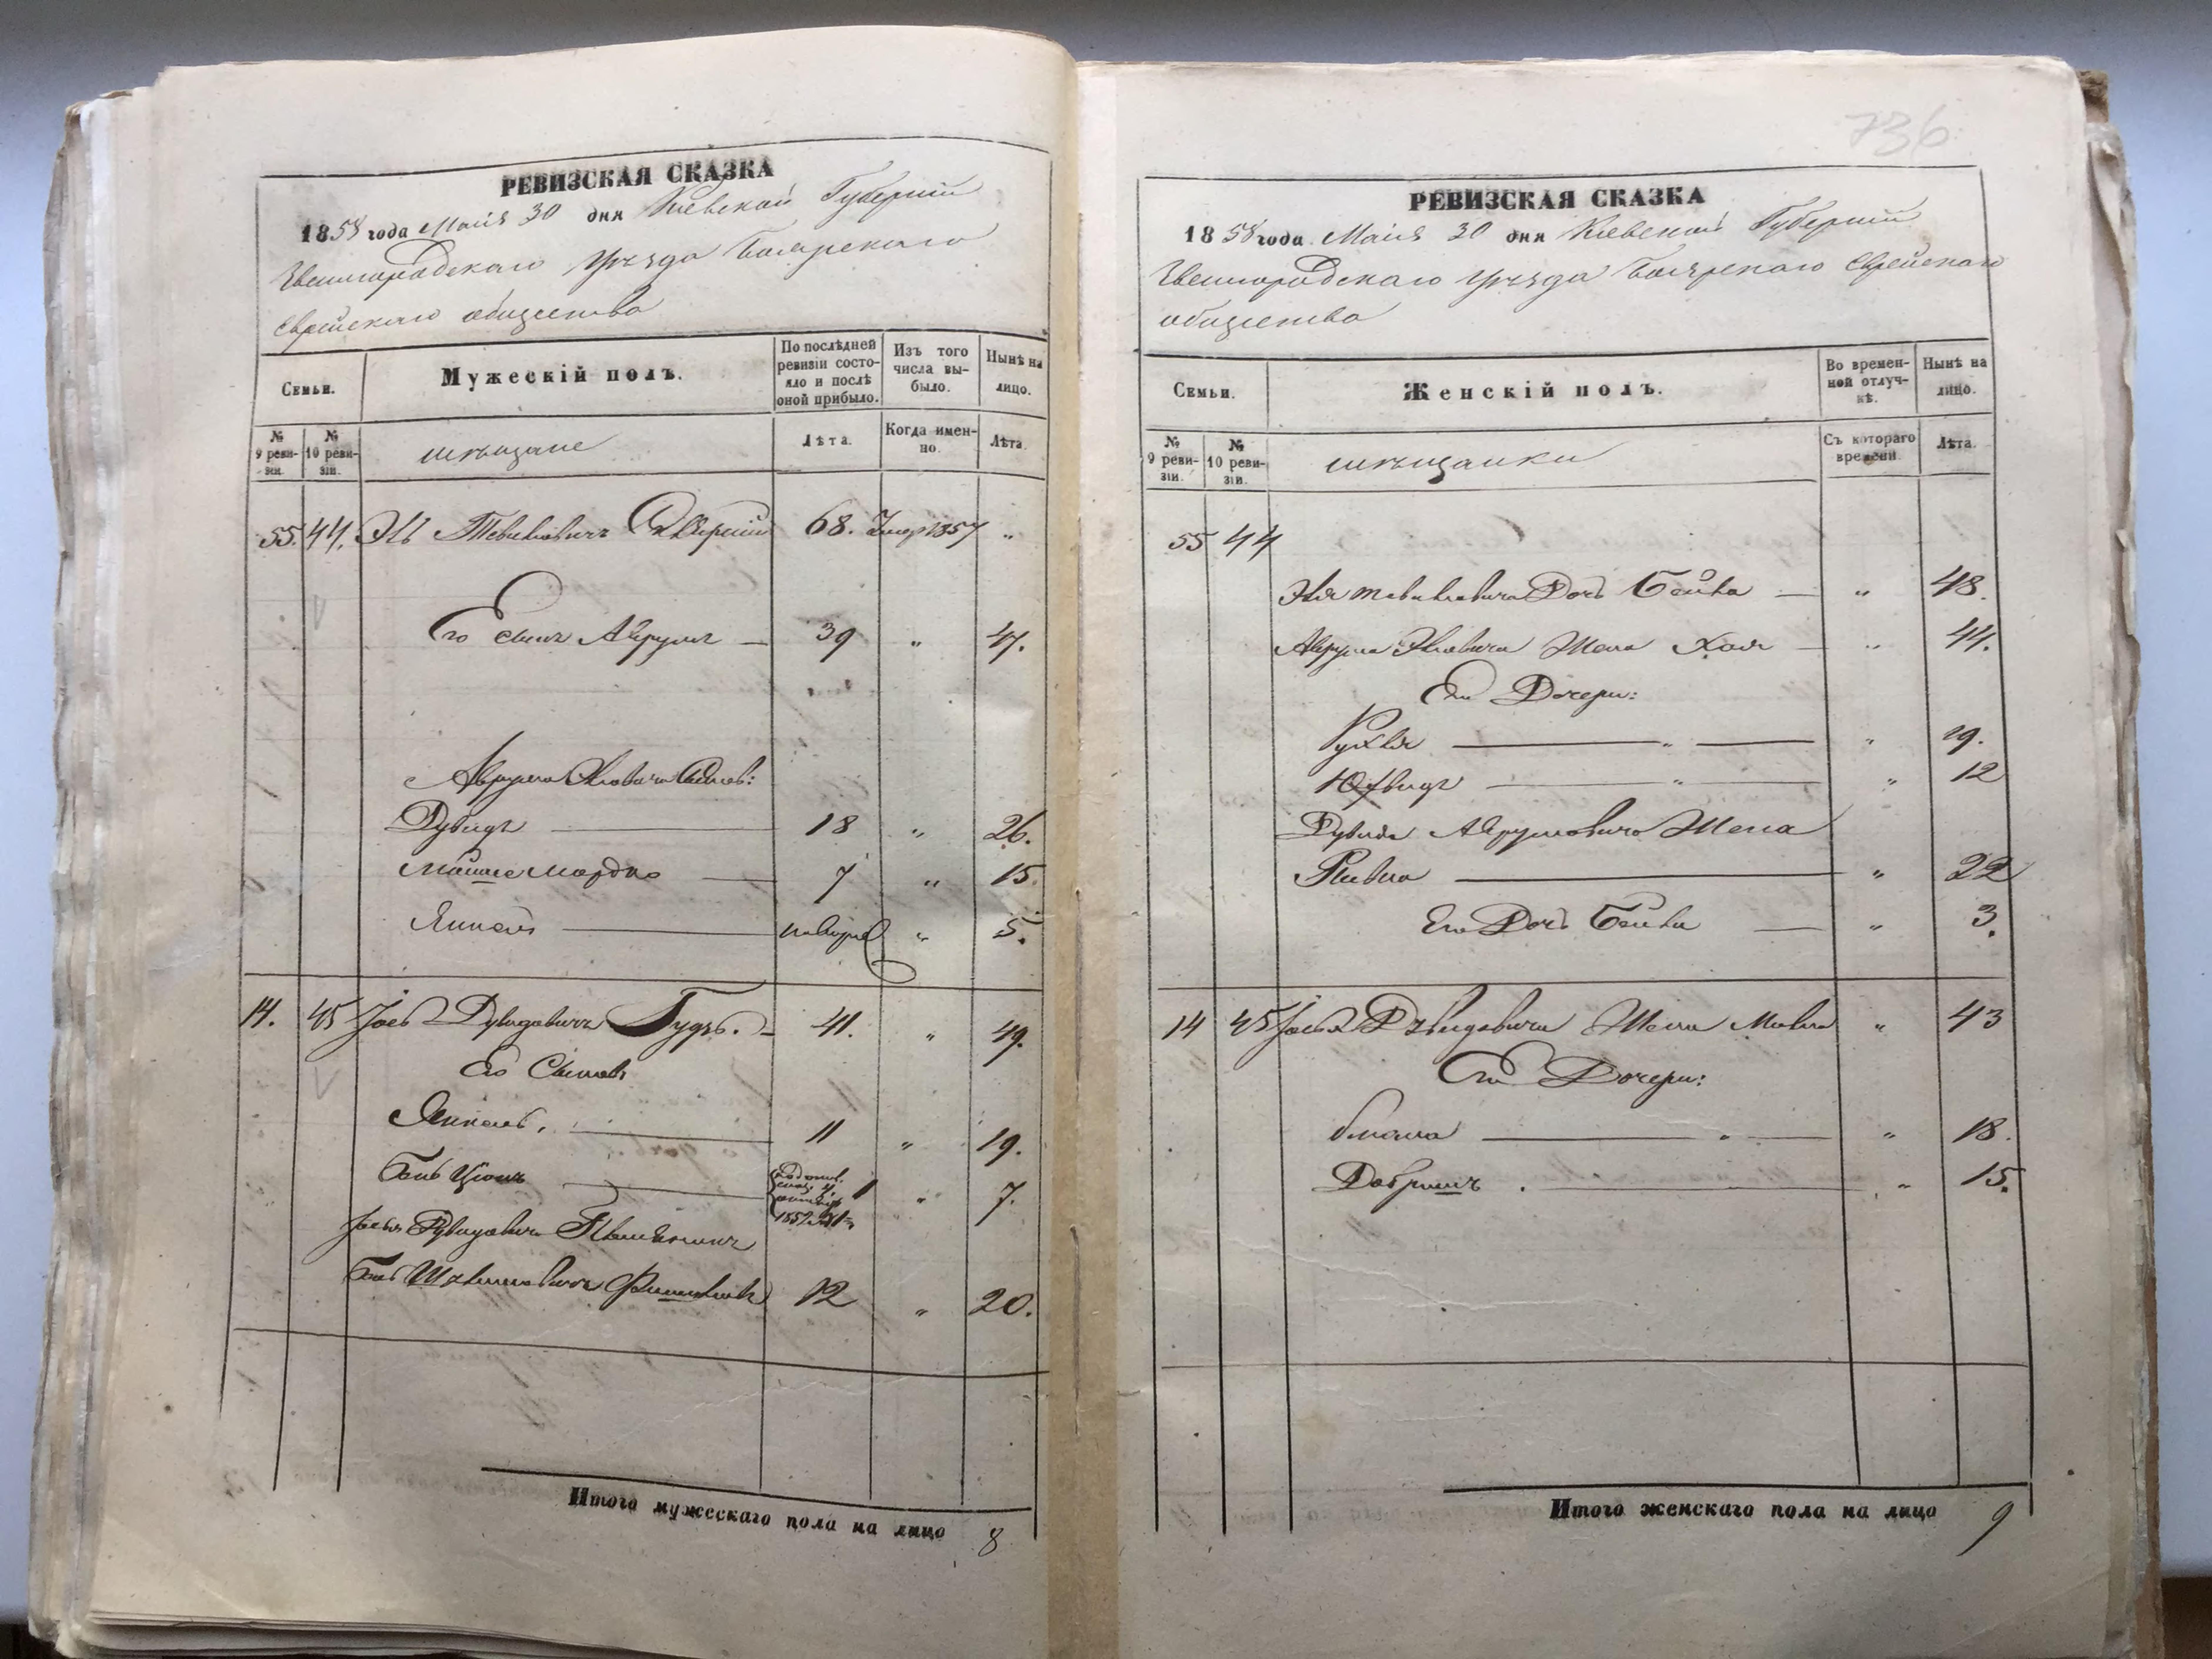 РЕВИЗСКАЯ СКАЗКА
1858 года Маія 30 дня Кіевской Губерніи
Звенигородскаго уѣзда Боярскаго
Еврейскаго общества
Семьи.
Мужескій полъ.
По послѣдней ревизіи состояло и послѣ оной прибыло.
Изъ того числа выбыло.
Нынѣ на лицо.
№ 9 ревизіи.
№ 10 ревизіи.
мѣщане
Лѣта.
Когда именно.
Лѣта
55. 44. Эль Тевелевичъ 68. Умер 1857 "
Его сынъ Аврумъ — 39 " 47.
Аврума Элевича Сынов:
Дувидъ — 18 " 26.
Мошко Мордко — 7 " 15.
Янкель — " 5.
14. 45 Іось Дувидовичъ Гудзь. — 41. " 49.
Его Сыновь
Янкель. — 11 " 19.
Бень Ціонъ — 1 " 7.
Іося Дувидовича Племянникъ
12 " 20.
Итого мужескаго пола на лицо 8
736
РЕВИЗСКАЯ СКАЗКА
1858 года Маія 30 дня Кіевской Губерніи
Звенигородскаго уѣзда Боярскаго Еврейскаго
общества
Семьи.
Женскій полъ.
Во временной отлучкѣ.
Нынѣ на лицо.
№ 9 ревизіи.
№ 10 ревизіи.
мѣщанки
Съ котораго времени.
Лѣта.
55 44
Эля Тевелевича Дочь Бейла — " 48.
Аврума Элевича Жена Хая — " 44.
Его Дочери:
Рухля — " — " 19.
— " — " 12
Дувида Аврумовича Жена
Ривка — " 22
Его Дочь Бейла — " 3.
14 45 Іося Дувидовича Жена Малка " 43
Его Дочери:
— " — " 18.
Добришъ . — " 15.
Итого женскаго пола на лицо 9